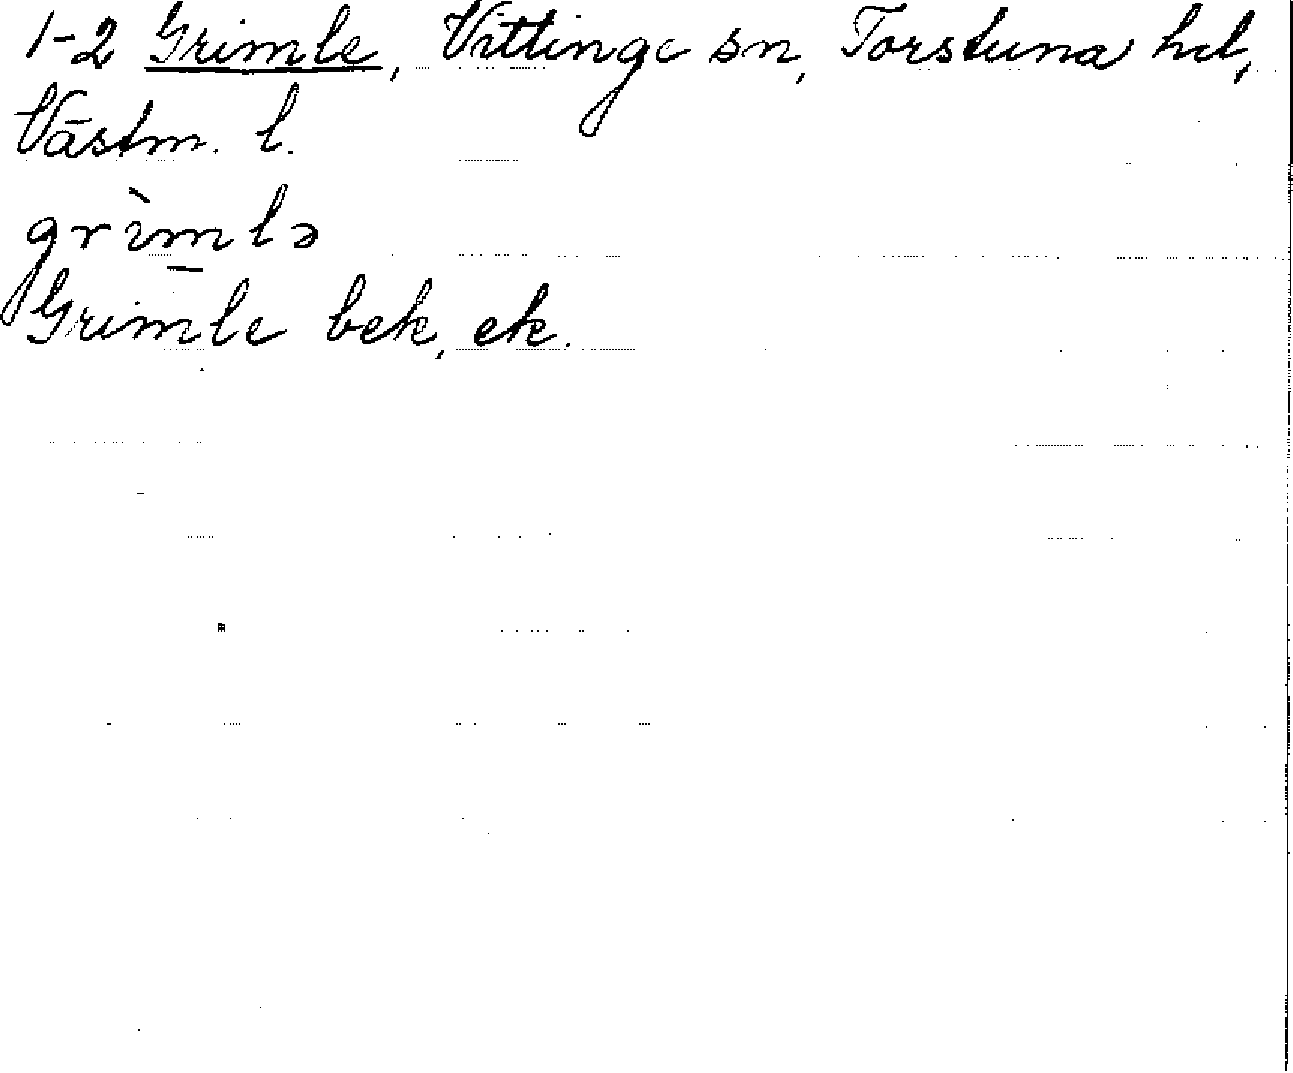 1-2 Grimle, Vittinge sn, Torstuna hd,
Västm. l.
grìm̲lə
Grimle bek, ek.